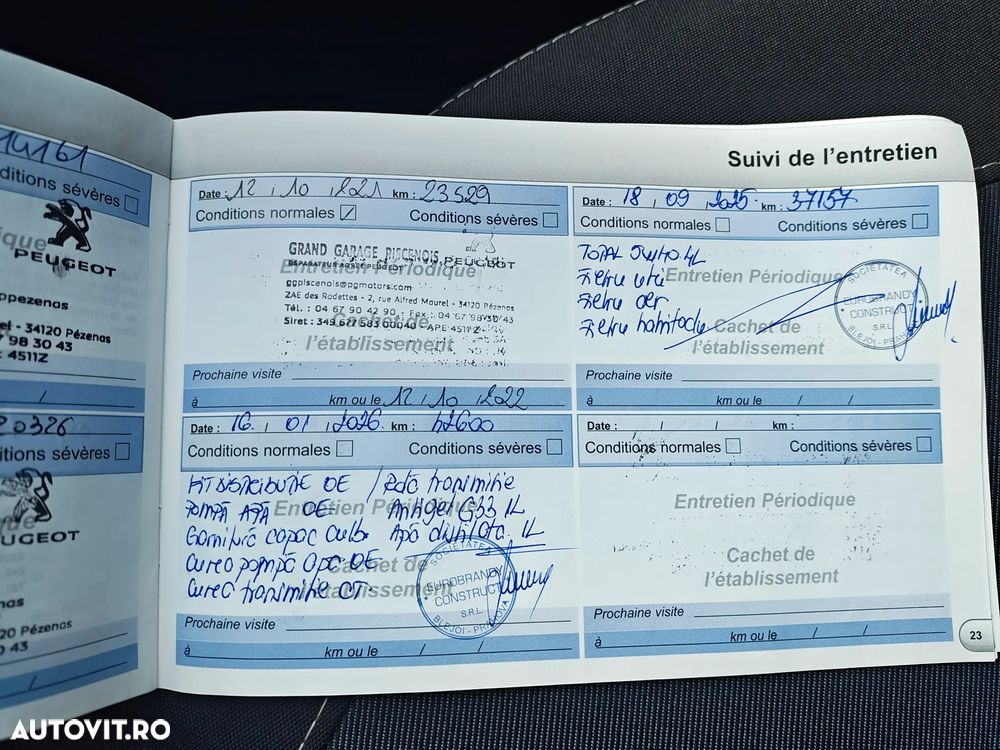 14161
ditions sévères
PEUGEOT
ppezenas
el - 34120 Pézenas
98 30 43
4511Z
/
20326
itions sévères
UGEOT
nas
20 Pézenas
0 43
/
Suivi de l'entretien
Date : 12 , 10 , 2021 km : 23529
Conditions normales / Conditions sévères
GRAND GARAGE PISCENOIS
PEUGEOT
Entretien Périodique
ggpiscenois@pgmotors.com
ZAE des Rodettes - 2, rue Alfred Maurel - 34120 Pézenas
Tél. : 04 67 90 42 90 - Fax : 04 67 98 30 43
Cachet de
l'établissement
Prochaine visite
à km ou le 12 , 10 , 2022
Date : 18 , 09 , 2025 km : 37157
Conditions normales Conditions sévères
Entretien Périodique
Filtru ulei
Filtru aer
Filtru habitaclu
Cachet de
l'établissement
SOCIETATEA
EUROBRANDY
CONSTRUCT
S.R.L.
BLEJOI - PRAHOVA
Prochaine visite
à km ou le / /
Date : 16 , 01 , 2026 km : 42600
Conditions normales Conditions sévères
Entretien Périodique
KIT DISTRIBUTIE OE / Rolă transmisie
POMPĂ APĂ OE Antigel G33 1L
Garnitură capac culb. Apă distilată 1L
Curea pompă apă OE
Curea transmisie CT
Cachet de
l'établissement
SOCIETATEA
EUROBRANDY
CONSTRUCT
S.R.L.
BLEJOI - PRAHOVA
Prochaine visite
à km ou le / /
Date : / / km :
Conditions normales Conditions sévères
Entretien Périodique
Cachet de
l'établissement
Prochaine visite
à km ou le / /
23
AUTOVIT.RO